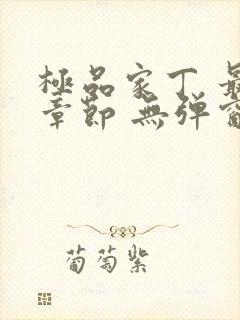 極品家丁 最
章節 無弹窗
葡萄紫